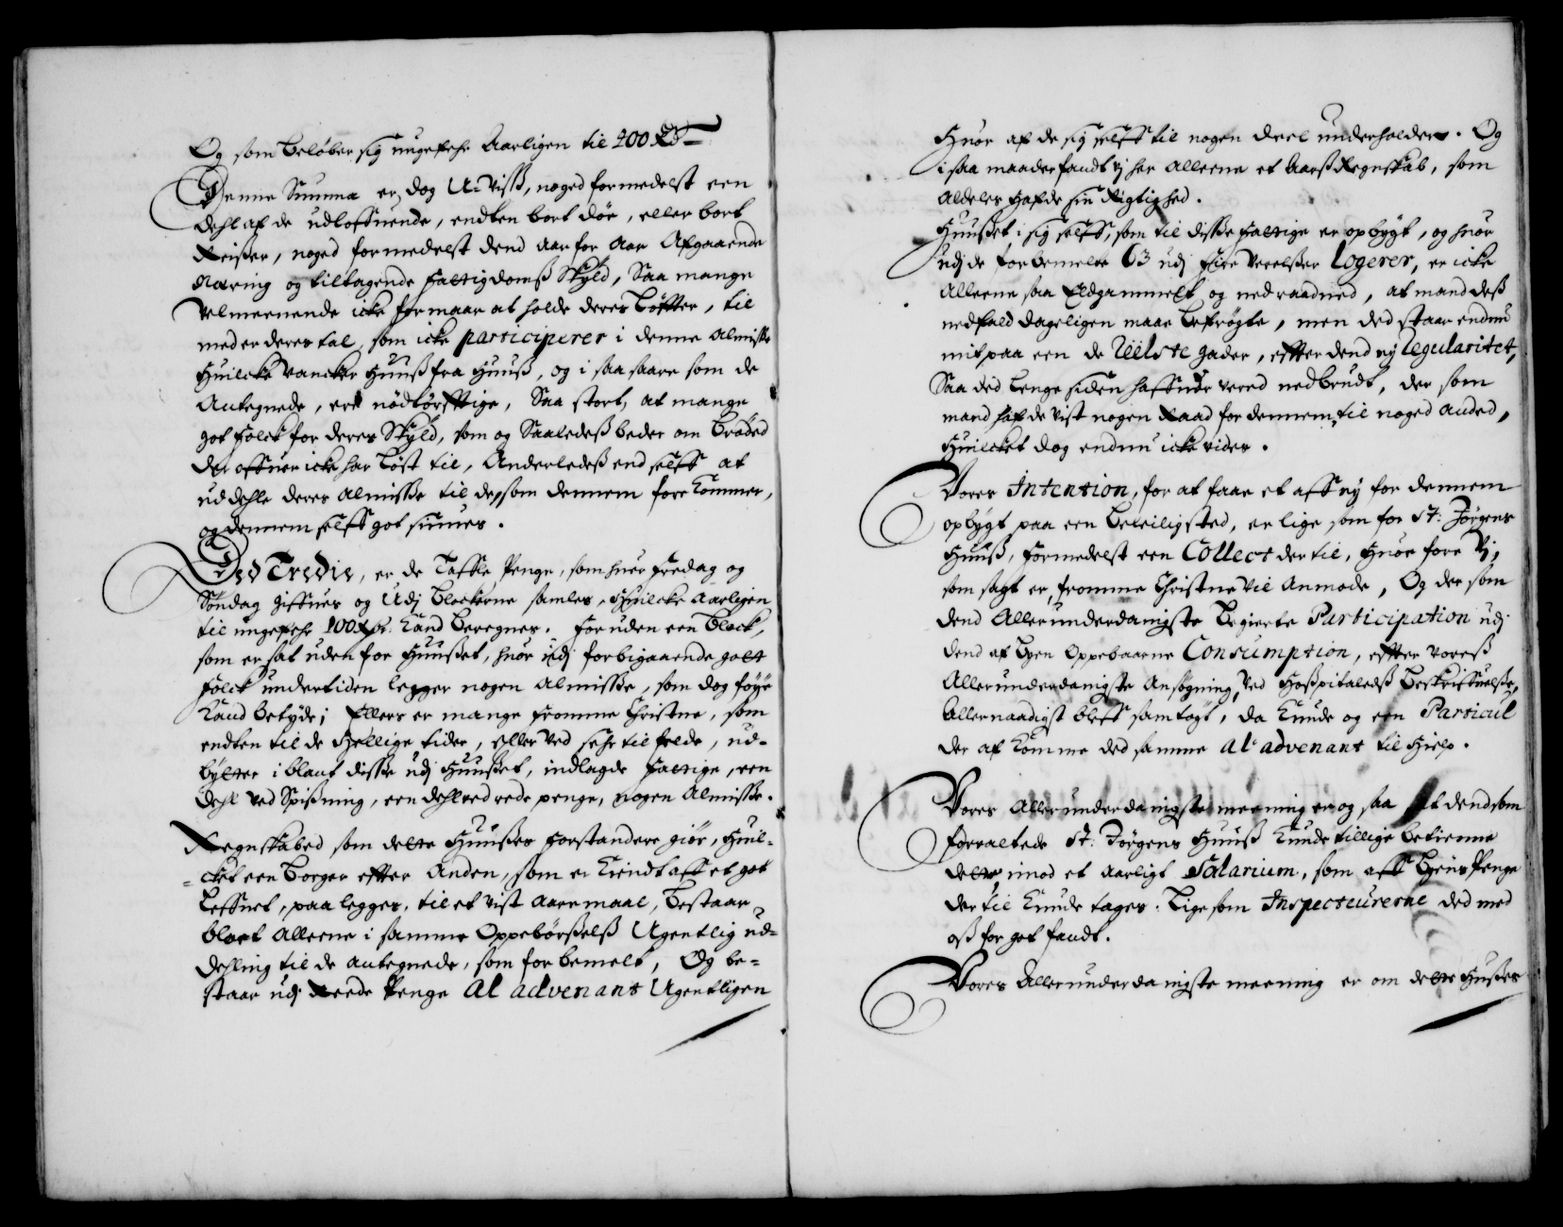 Og som beløber sig ungefehr Aarligen til 400 Rdr
Denne Summa er dog U-visß, noged formedelst een
dehl af de udloffuende, endten bort døe, eller bort
Reißer, noged formedelst dend aar for aar Afgaaende
Næring og tiltagende fattigdomß Skyld, Saa mange
velmeenende icke formaar at holde deres Løffter, til
med er deres tal, som icke participerer i denne Almisße
Huilcke vancker Huuß fra Huuß, og i saa saare som de
Antegnede, ere nødtørfftige, Saa stort, at mange
got folck for deres Skyld, som og Saaledeß beder om Brøded
der offuer icke har Løst til, Anderledeß end self at
uddehle deres Almisße til dem som dennem fore kommer,
og dennem selff got siunes.
Ded Tredie, er de Taffle Penge, som huer fredag og
Søndag giffues og Udj Blockerne samles, Huilcke Aarligen
til ungefehr 100 Rdr. kand beregnes. foruden een Block,
som er sat uden for Huußet, huor udj forbigaaende gott
folck undertiden legger nogen Almisße, som dog føye
kand betyde; Ellers er mange fromme Christne, som
endten til de hellige tider, eller ved sehr tilfelde, ud-
bytter i blant disße udj Huußet, indlagde fattige, een
dehl ved Spißning, een dehl ved rede penge, nogen Almisße.
Regnskabed som dette Huußes forstandere giør, Huil-
-cket een Borger effter Anden, som er kiendt aff et got
Leffnet, paa legges, til et vist Aaremaal, bestaar
blot alleene i samme Oppebørßelß Ugentlig ud-
dehling til de antegnede, som forbemelt, Og be-
staar udj Reede Penge Al advenant Ugentligen
Huor af de sig selff til nogen deel underholder. Og
i saa maader fandt Vj her alleene et Aarß Regnskab, som
aldeles hafde sin Rigtighed.
Huußet, i sig selff, som til disße fattige er opbygt, og huor
udj de forbemelte 63 udj fire Verelßer Logerer, er icke
alleene saa Eldgammelt og nedraadned, at mand deß
nedfald dageligen maae befrögte, men ded staar endnu
mit paa een de Reelste gader, effter dend ny Regularitet,
Saa ded lenge siden haffude vered nedbrudt, der som
mand hafde vist nogen Raad for dennem til noged anded,
Huilcket dog endnu icke vides.
Vores Intention, for at faae et aff ny for dennem
opbygt paa een beleilig sted, er lige som for St: Jørgens
Huuß, formedelst een Collect der til, huor fore Vj,
som sagt er, fromme Christne vil anmode, Og der som
dend Allerunderdanigste begierte Participation udj
dend af byen oppebaarne Consumption, effter voreß
Allerunderdanigste Ansøgning, Ved Hoßpitaledß beskriffuelße,
Allernaadigst bleff samtøgt, da kunde og een Particul
der af komme ded samme al' advenant til hielp.
Vores Allerunderdanigste meening er og saa at dend som
forvaltede St: Jørgens Huuß kunde tillige betienne
dette imod et aarligt Salarium, som aff byens Penge
der til kunde tages. Lige som Inspecteurerne ded med
oß for got fandt.
Vores Allerunderdanigste meening er om dette Hußes